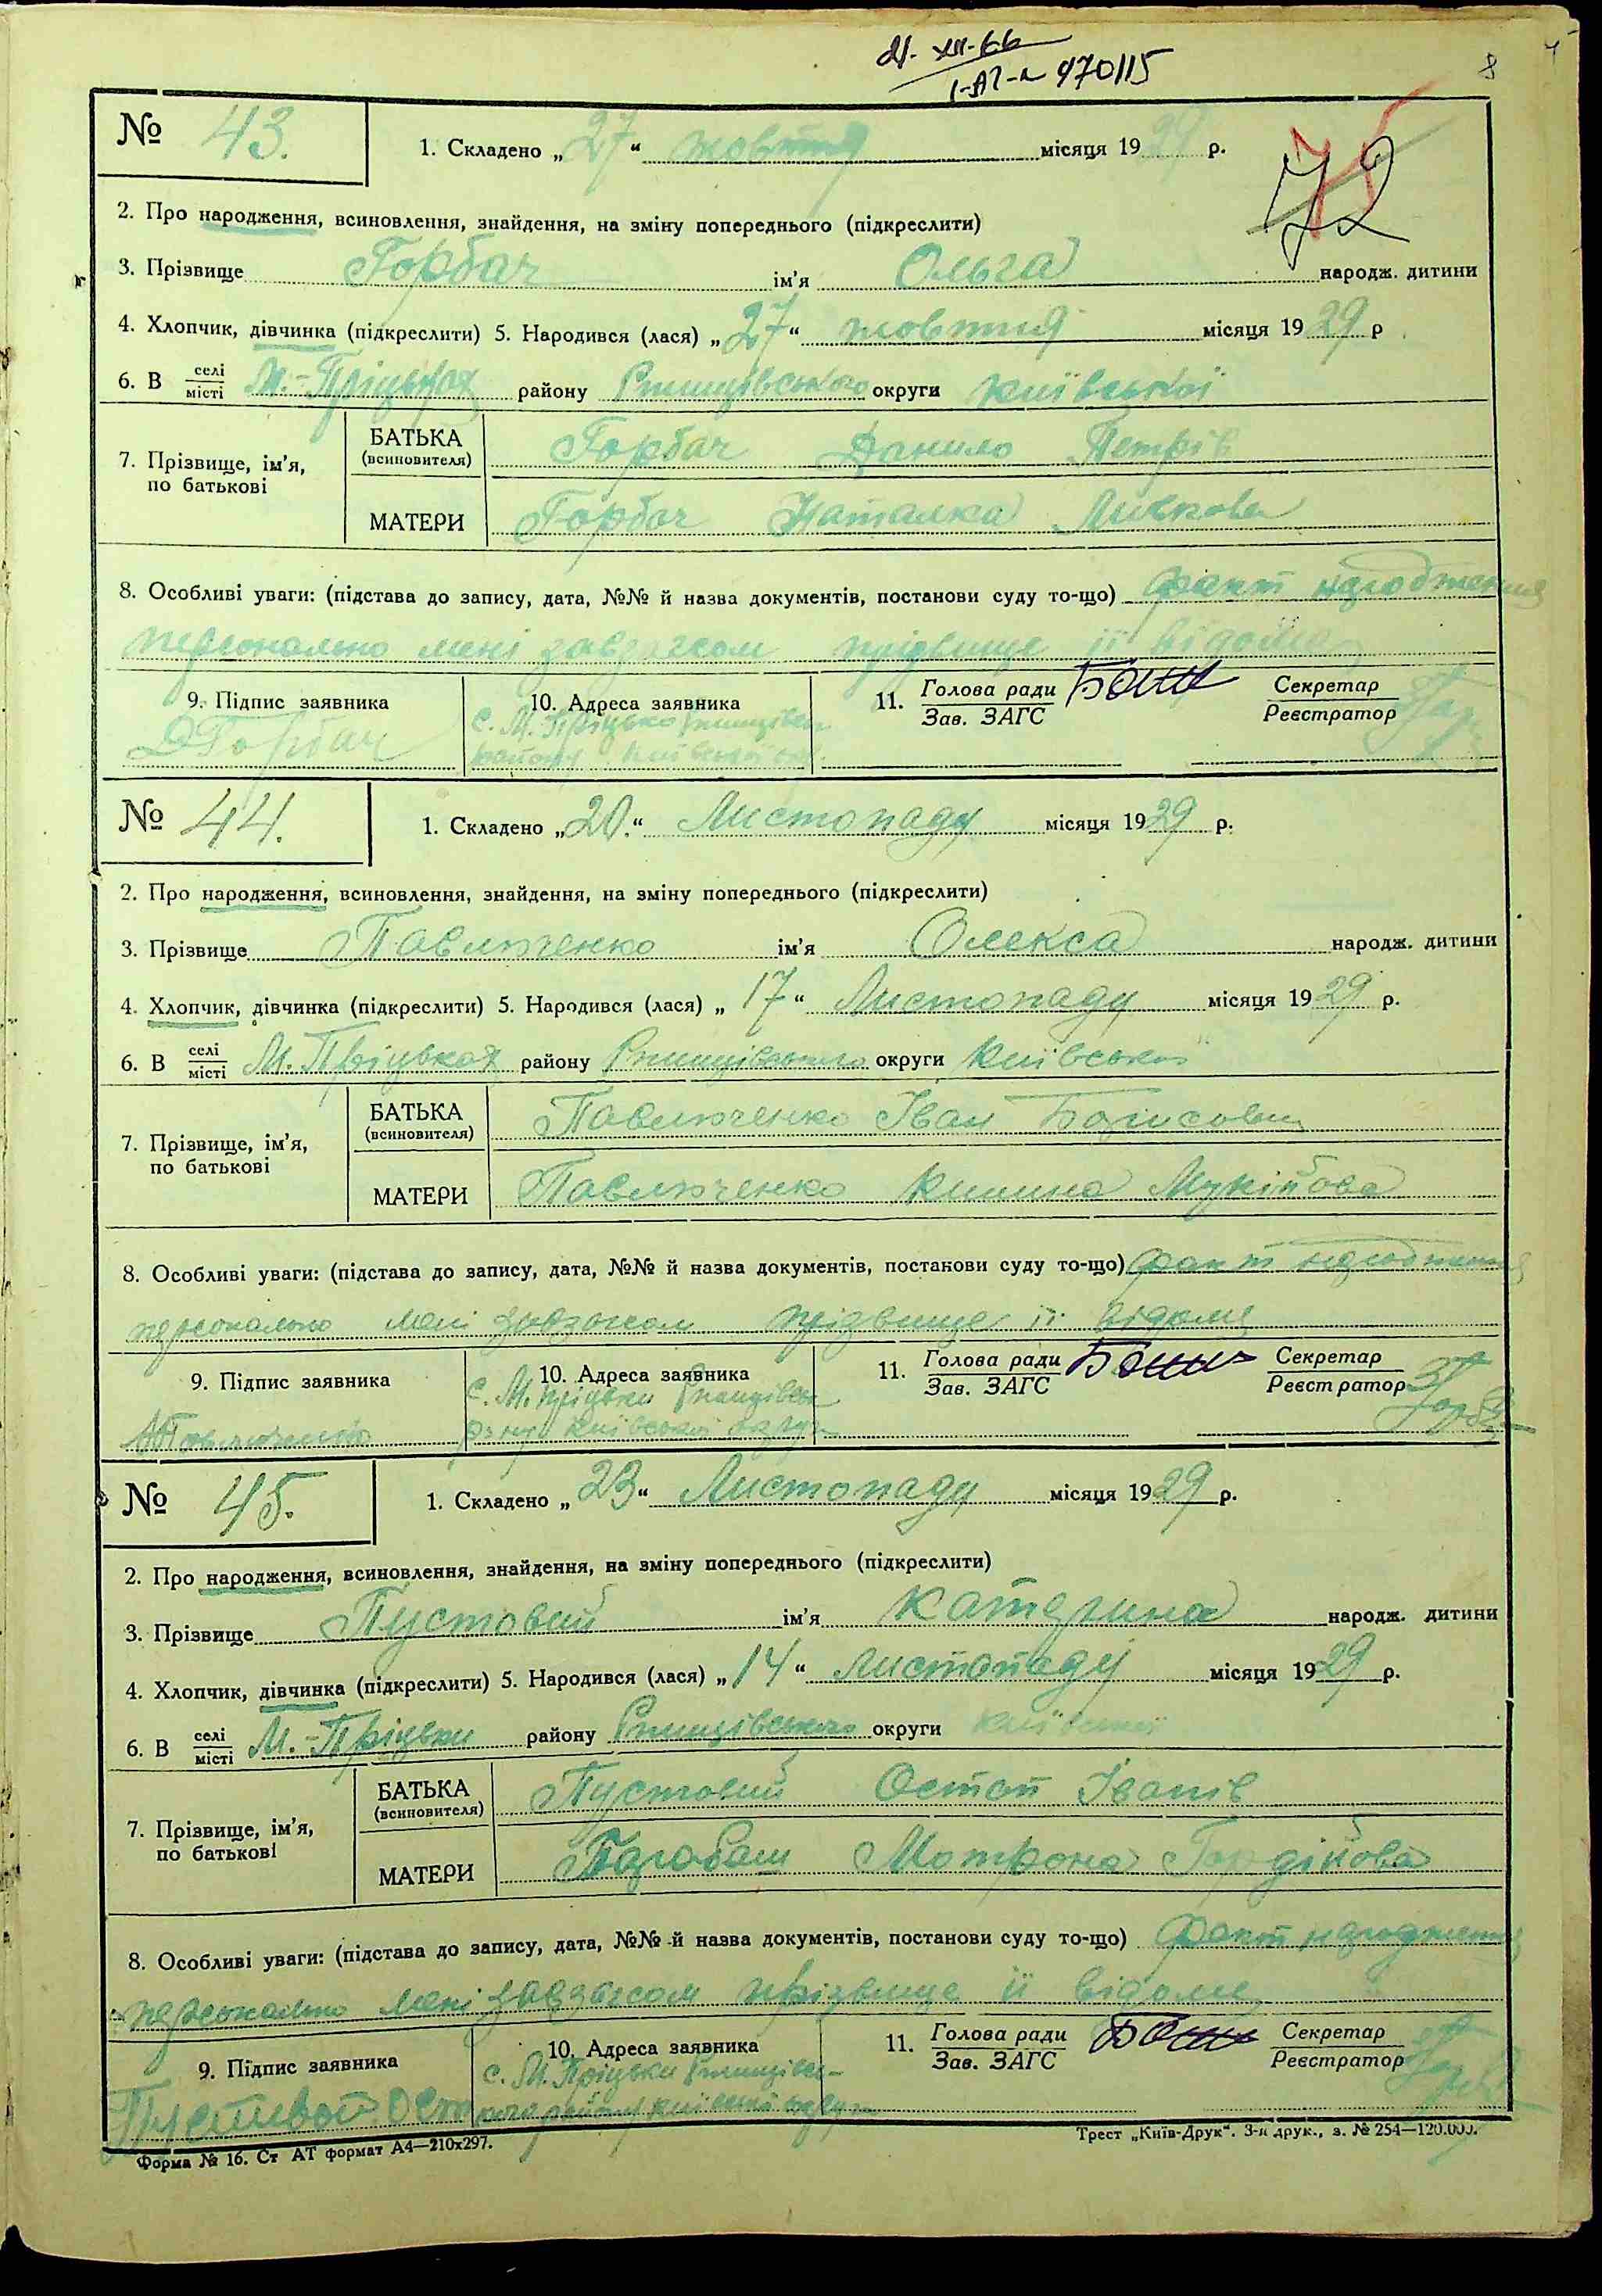 21-XII-66
470/15
8
№ 43.
1. Складено „27“ жовтня місяця 1929 р.
72
2. Про народження, всиновлення, знайдення, на зміну попереднього (підкреслити)
3. Прізвище Горбач ім’я Ольга народж. дитини
4. Хлопчик, дівчинка (підкреслити) 5. Народився (лася) „27“ жовтня місяця 1929 р
6. В селі місті М.-Пріцьках району Ржищівського округи Київської
7. Прізвище, ім’я, по батькові
БАТЬКА (всиновителя) Горбач Данило Петрів
МАТЕРИ Горбач Наталка Левкова
8. Особливі уваги: (підстава до запису, дата, №№ й назва документів, постанови суду то-що) факт народження
персонально мені завзагсом прізвище її відоме
9. Підпис заявника 10. Адреса заявника 11. Голова ради Зав. ЗАГС Секретар Реєстратор
ДГорбач с. М. Пріцько Ржищівськ
району Київської ок
№ 44.
1. Складено „20.“ Листопаду місяця 1929 р.
2. Про народження, всиновлення, знайдення, на зміну попереднього (підкреслити)
3. Прізвище Павлюченко ім’я Олекса народж. дитини
4. Хлопчик, дівчинка (підкреслити) 5. Народився (лася) „17“ Листопаду місяця 1929 р.
6. В селі місті М. Пріцьках району Ржищівського округи Київської
7. Прізвище, ім’я, по батькові
БАТЬКА (всиновителя) Павлюченко Іван Борисович
МАТЕРИ Павлюченко Килина Мукійова
8. Особливі уваги: (підстава до запису, дата, №№ й назва документів, постанови суду то-що) факт народження
персонально мені завзагсом прізвище її відоме
9. Підпис заявника 10. Адреса заявника 11. Голова ради Зав. ЗАГС Секретар Реєстратор
Павлюченко с. М. Пріцьки Ржищівськ
р-ну Київської округи
№ 45.
1. Складено „23“ Листопаду місяця 1929 р.
2. Про народження, всиновлення, знайдення, на зміну попереднього (підкреслити)
3. Прізвище Пустовий ім’я Катерина народж. дитини
4. Хлопчик, дівчинка (підкреслити) 5. Народився (лася) „14“ листопаду місяця 1929 р.
6. В селі місті М.-Пріцьки району Ржищівського округи Київської
7. Прізвище, ім’я, по батькові
БАТЬКА (всиновителя) Пустовий Остап Іванів
МАТЕРИ Барабаш Мотрона Гордійова
8. Особливі уваги: (підстава до запису, дата, №№ й назва документів, постанови суду то-що) факт народження
персонально мені завзагсом прізвище її відоме
9. Підпис заявника 10. Адреса заявника 11. Голова ради Зав. ЗАГС Секретар Реєстратор
Пустивой Ост с. М. Пріцьки Ржищівсь-
кого району Київської округи
Форма № 16. Ст АТ формат А4—210х297.
Трест „Київ-Друк“. 3-я друк., з. № 254—120.000.